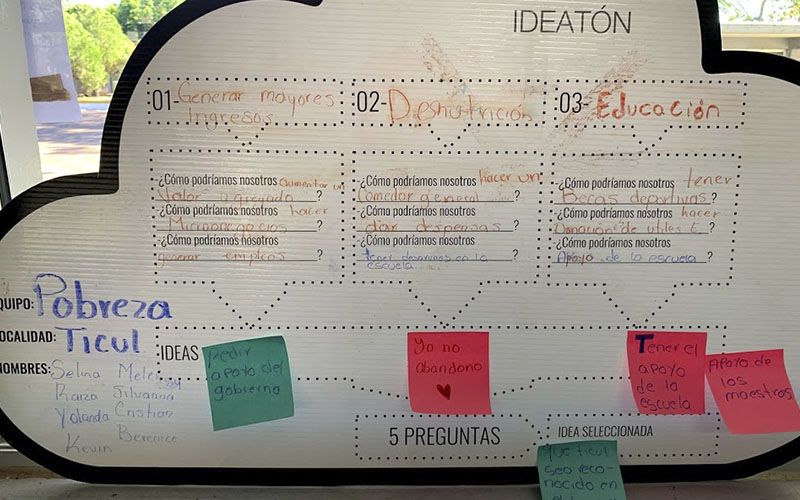 IDEATÓN
01- Generar mayores
Ingresos
02- Desnutrición
03- Educación
-¿Cómo podríamos nosotros aumentar un
Valor agregado ?
-¿Cómo podríamos nosotros hacer
Micronegocios ?
-¿Cómo podríamos nosotros
generar empleos ?
-¿Cómo podríamos nosotros hacer un
Comedor general ?
-¿Cómo podríamos nosotros
dar despensas ?
-¿Cómo podríamos nosotros
tener desayunos en la
escuela ?
-¿Cómo podríamos nosotros tener
Becas deportivas ?
-¿Cómo podríamos nosotros hacer
Donación de utiles E. ?
-¿Cómo podríamos nosotros
Apoyo de la escuela ?
EQUIPO: Pobreza
LOCALIDAD: Ticul
NOMBRES: Selina
Raiza Silvanna
Yolanda Cristian
Kevin Berenice
IDEAS
Pedir
apoyo del
gobierno
Yo no
abandono
Tener el
apoyo
de la
escuela
Apoyo de
los
maestros
5 PREGUNTAS
IDEA SELECCIONADA
que ticul
sea reco-
nocido en